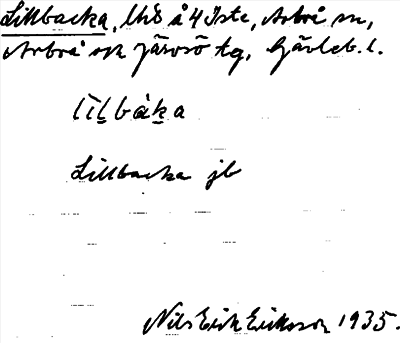 Lillbacka, lht å 4 Iste, Arbrå sn,
Arbrå och Järvsö tg, Gävleb. l.
lil̲bàk̲a
Lillbacka jb
Nils Erik Eriksson 1935.